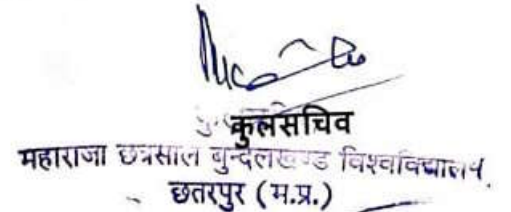 कुलसचिव
महाराजा छत्रसाल बुन्देलखण्ड विश्वविद्यालय,
छतरपुर (म.प्र.)